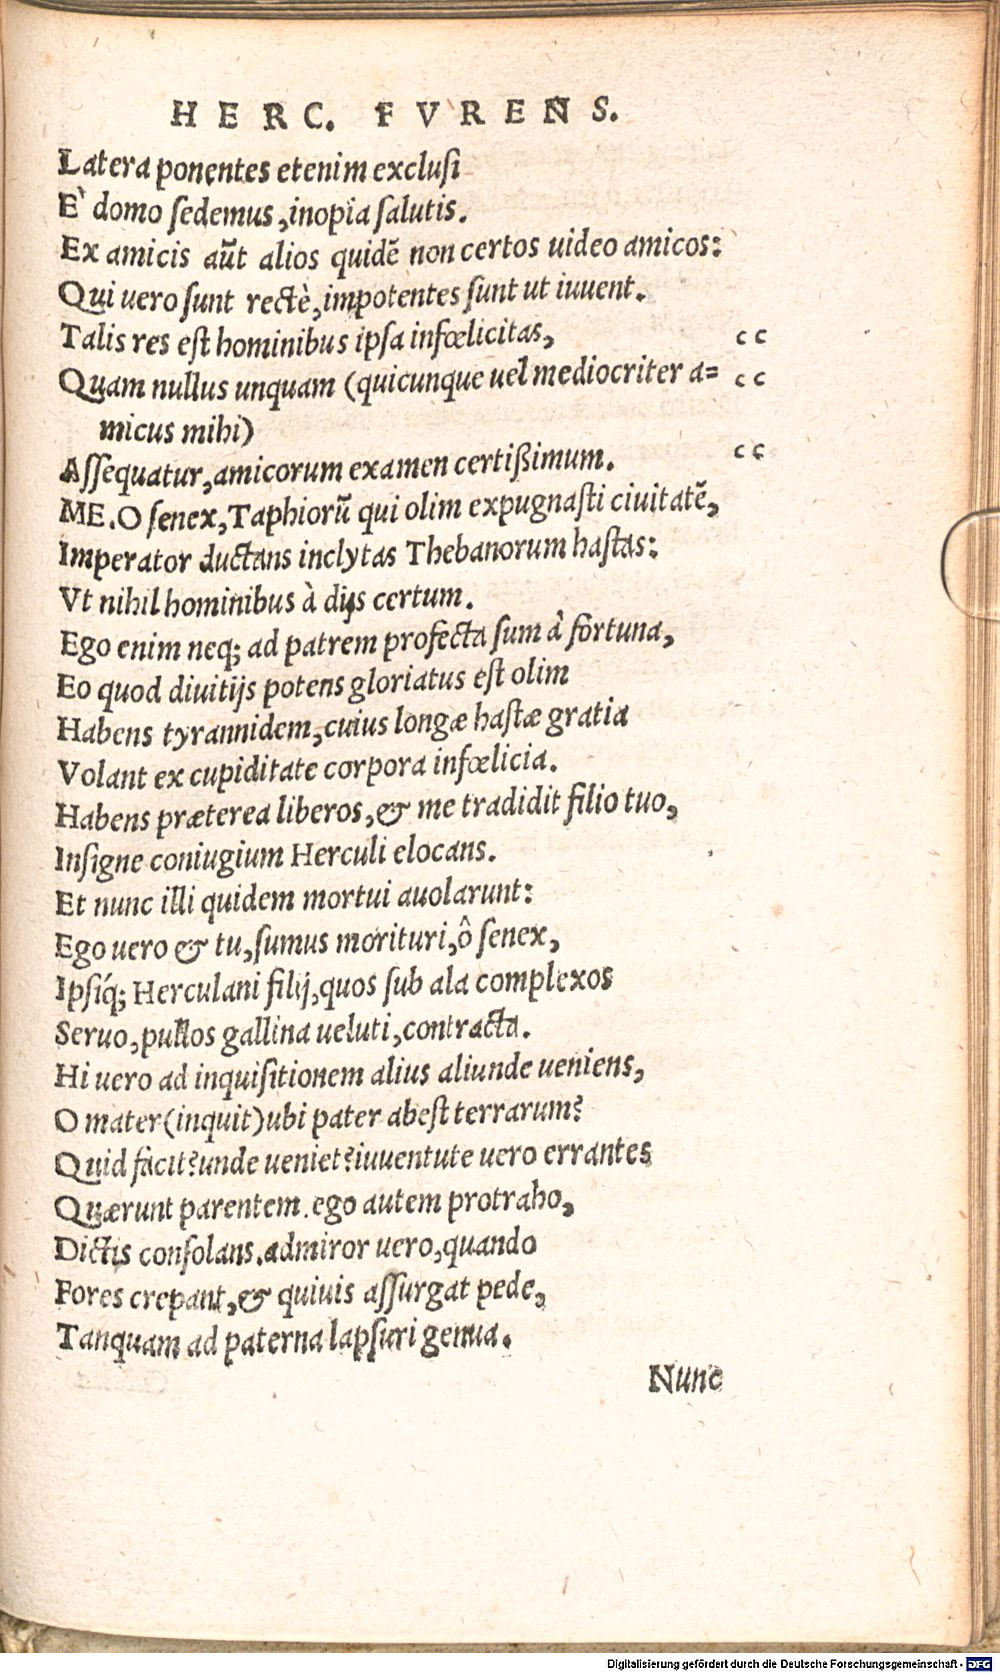 HERC. FVRENS.
Latera ponentes etenim exclusi
E` domo sedemus, inopia salutis.
Ex amicis aūt alios quidē non certos uideo amicos:
Qui uero sunt rectè, impotentes sunt ut iuuent.
Talis res est hominibus ipsa infœlicitas, c c
Quam nullus unquam (quicunque uel mediocriter a= c c
micus mihi)
Assequatur, amicorum examen certißimum. c c
ME. O senex, Taphiorū qui olim expugnasti ciuitatē,
Imperator ductans inclytas Thebanorum hastas:
Vt nihil hominibus à dijs certum.
Ego enim neq; ad patrem profecta sum à fortuna,
Eo quod diuitijs potens gloriatus est olim
Habens tyrannidem, cuius longæ hastæ gratia
Volant ex cupiditate corpora infœlicia.
Habens præterea liberos, & me tradidit filio tuo,
Insigne coniugium Herculi elocans.
Et nunc illi quidem mortui auolarunt:
Ego uero & tu, sumus morituri, ô senex,
Ipsíq; Herculani filij, quos sub ala complexos
Seruo, pullos gallina ueluti, contracta.
Hi uero ad inquisitionem alius aliunde ueniens,
O mater (inquit) ubi pater abest terrarum?
Quid facit? unde ueniet? iuuentute uero errantes
Quærunt parentem. ego autem protraho,
Dictis consolans. admiror uero, quando
Fores crepant, & quiuis assurgat pede,
Tanquam ad paterna lapsuri genua.
Nunc
Digitalisierung gefördert durch die Deutsche Forschungsgemeinschaft - DFG